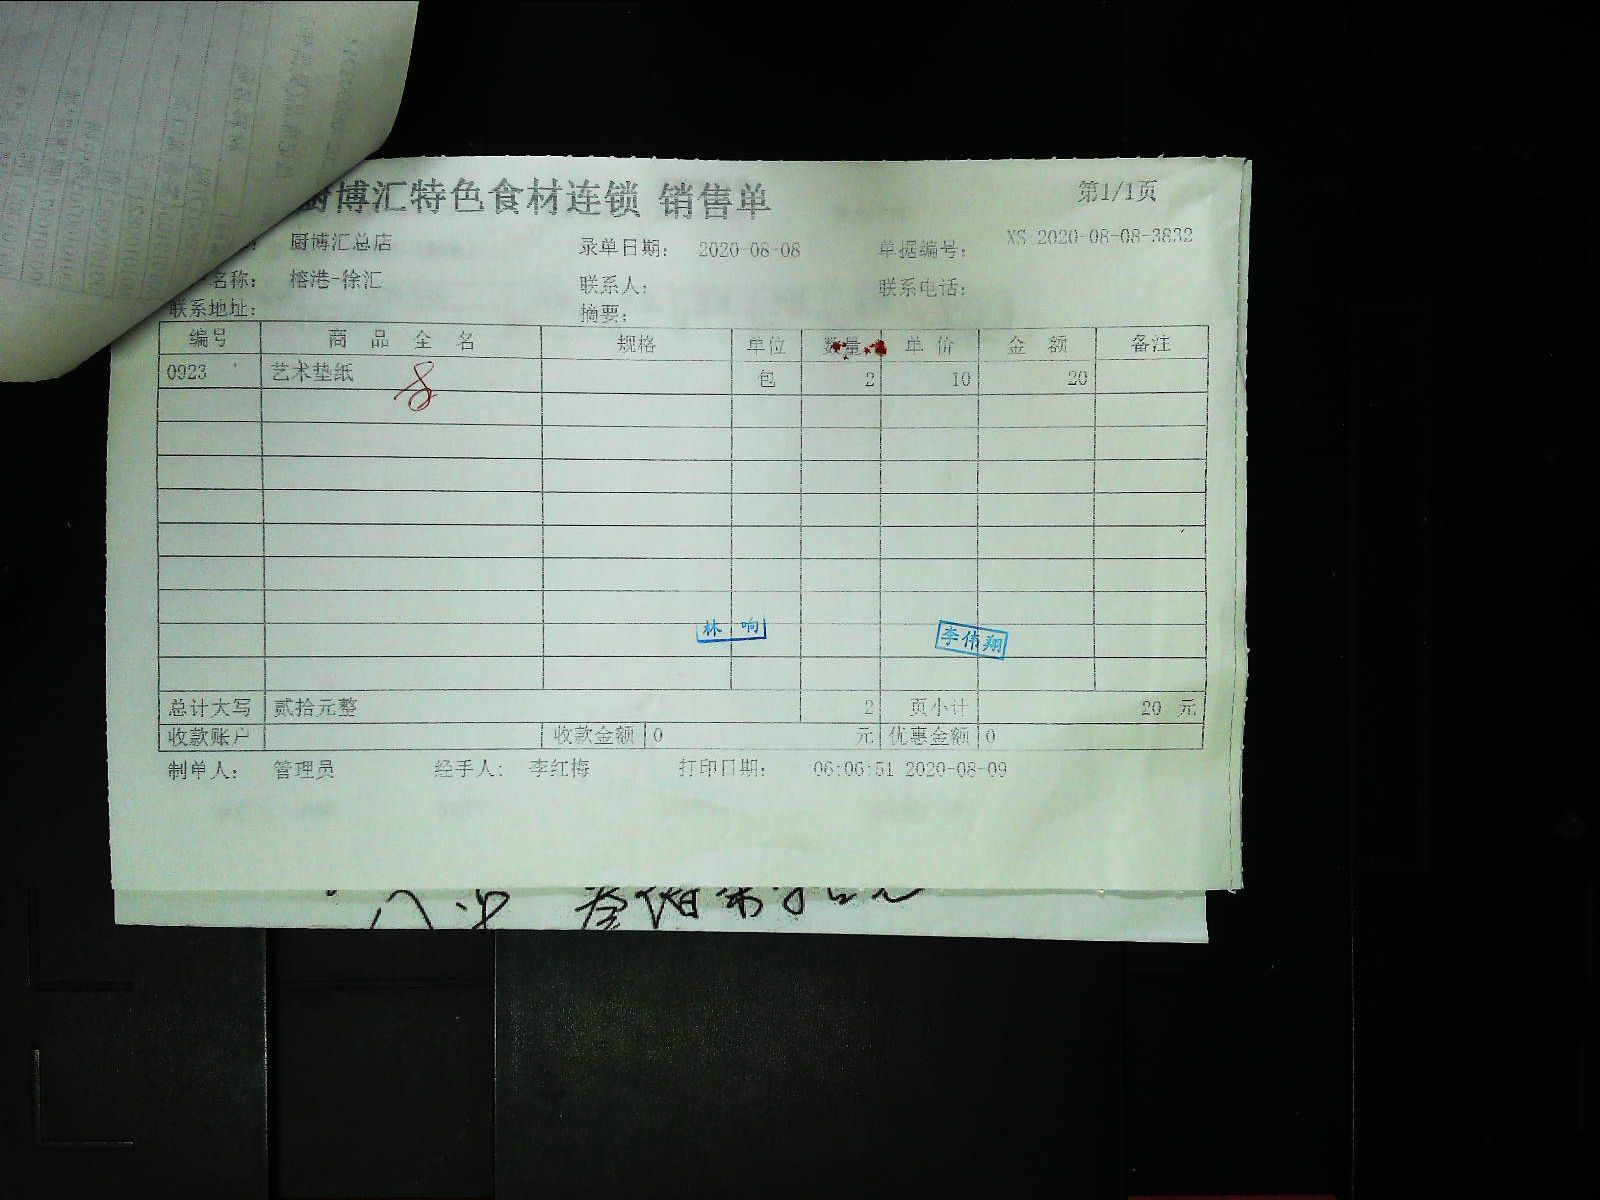 厨博汇特色食材连锁 销售单 第1/1页
厨博汇总店 录单日期: 2020-08-08 单据编号: XS-2020-08-08-3832
名称: 榕港-徐汇 联系人: 联系电话:
联系地址: 摘要:
编号 商品全名 规格 单位 数量 单价 金额 备注
0923 艺术垫纸 包 2 10 20
林响 李伟翔
总计大写 贰拾元整 2 页小计 20 元
收款账户 收款金额 0 元 优惠金额 0
制单人: 管理员 经手人: 李红梅 打印日期: 06:06:51 2020-08-09